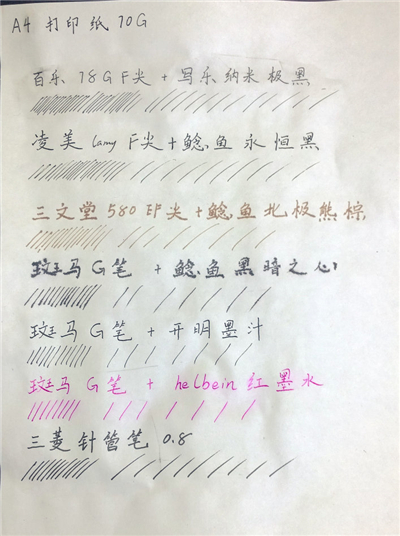 A4 打印纸 70G
百乐 78G F尖 + 写乐纳米极黑
凌美 Lamy F尖 + 鲶鱼永恒黑
三文堂 580 EF尖 + 鲶鱼北极熊棕
斑马 G笔 + 鲶鱼黑暗之心
斑马 G笔 + 开明墨汁
斑马 G笔 + helbein 红墨水
三菱针管笔 0.8